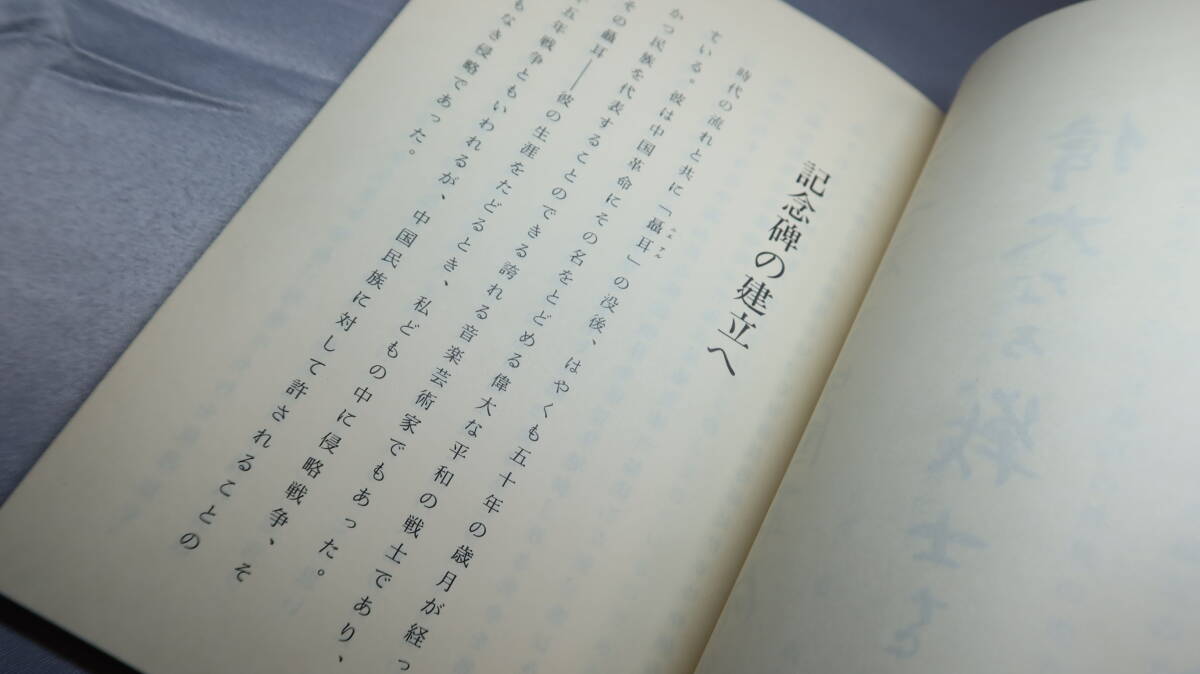 記念碑の建立へ
時代の流れと共に「聶耳」の没後、はやくも五十年の歳月が経っ
ニエアル
ている。彼は中国革命にその名をとどめる偉大な平和の戦士であり、
かつ民族を代表することのできる誇れる音楽芸術家でもあった。
その聶耳――彼の生涯をたどるとき、私どもの中に侵略戦争、そ
五年戦争ともいわれるが、中国民族に対して許されることの
もなき侵略であった。